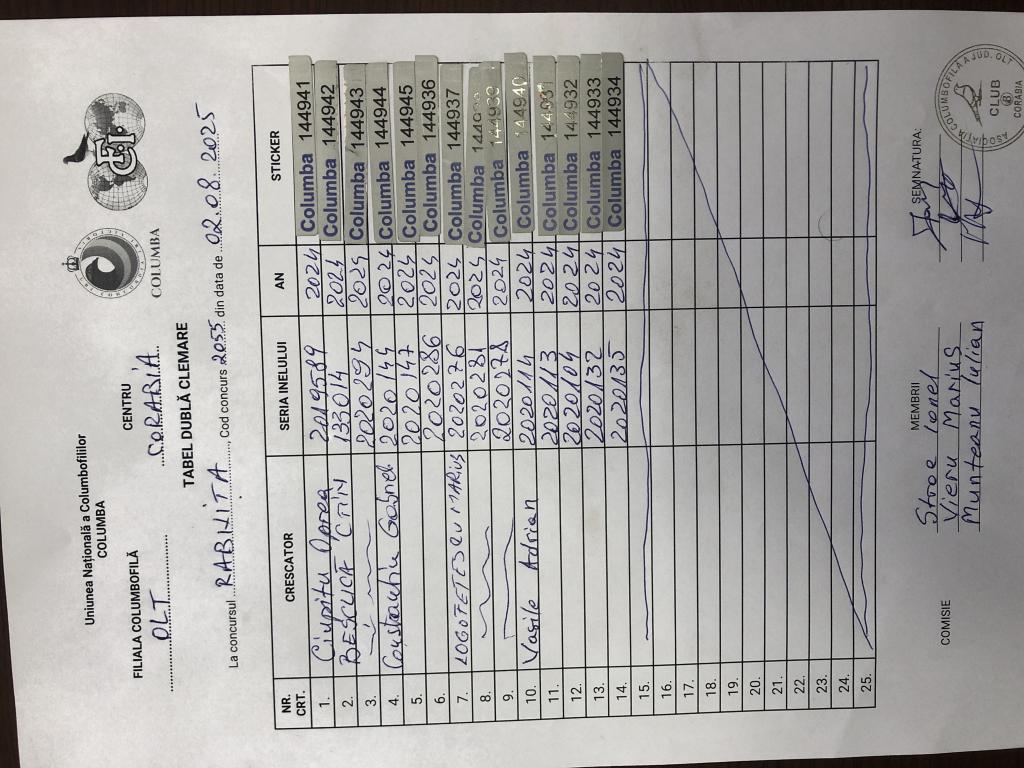 Uniunea Națională a Columbofililor
COLUMBA
COLUMBA
FILIALA COLUMBOFILĂ CENTRU
OLT CORABIA
TABEL DUBLĂ CLEMARE
La concursul RABNITA, Cod concurs 2055 din data de 02.08.2025
NR. CRT. CRESCATOR SERIA INELULUI AN STICKER
1. Ciupitu Oprea 2019589 2024 Columba 144941
2. BESCUCĂ CTIN 133014 2024 Columba 144942
3. 2020294 2024 Columba 144943
4. Constantin Gabriel 2020144 2024 Columba 144944
5. 2020147 2024 Columba 144945
6. 2020286 2024 Columba 144936
7. LOGOFETESCU MARIUS 2020276 2024 Columba 144937
8. 2020281 2024 Columba
9. 2020178 2024 Columba
10. Vasile Adrian 2020114 2024 Columba 144940
11. 2020113 2024 Columba
12. 2020104 2024 Columba 144932
13. 2020132 2024 Columba 144933
14. 2020135 2024 Columba 144934
15.
16.
17.
18.
19.
20.
21.
22.
23.
24.
25.
COMISIE MEMBRII SEMNATURA:
Stroe Ionel
Vieru Marius
Munteanu Iulian
ASOCIAȚIA COLUMBOFILA JUD. OLT
CLUB
CORABIA